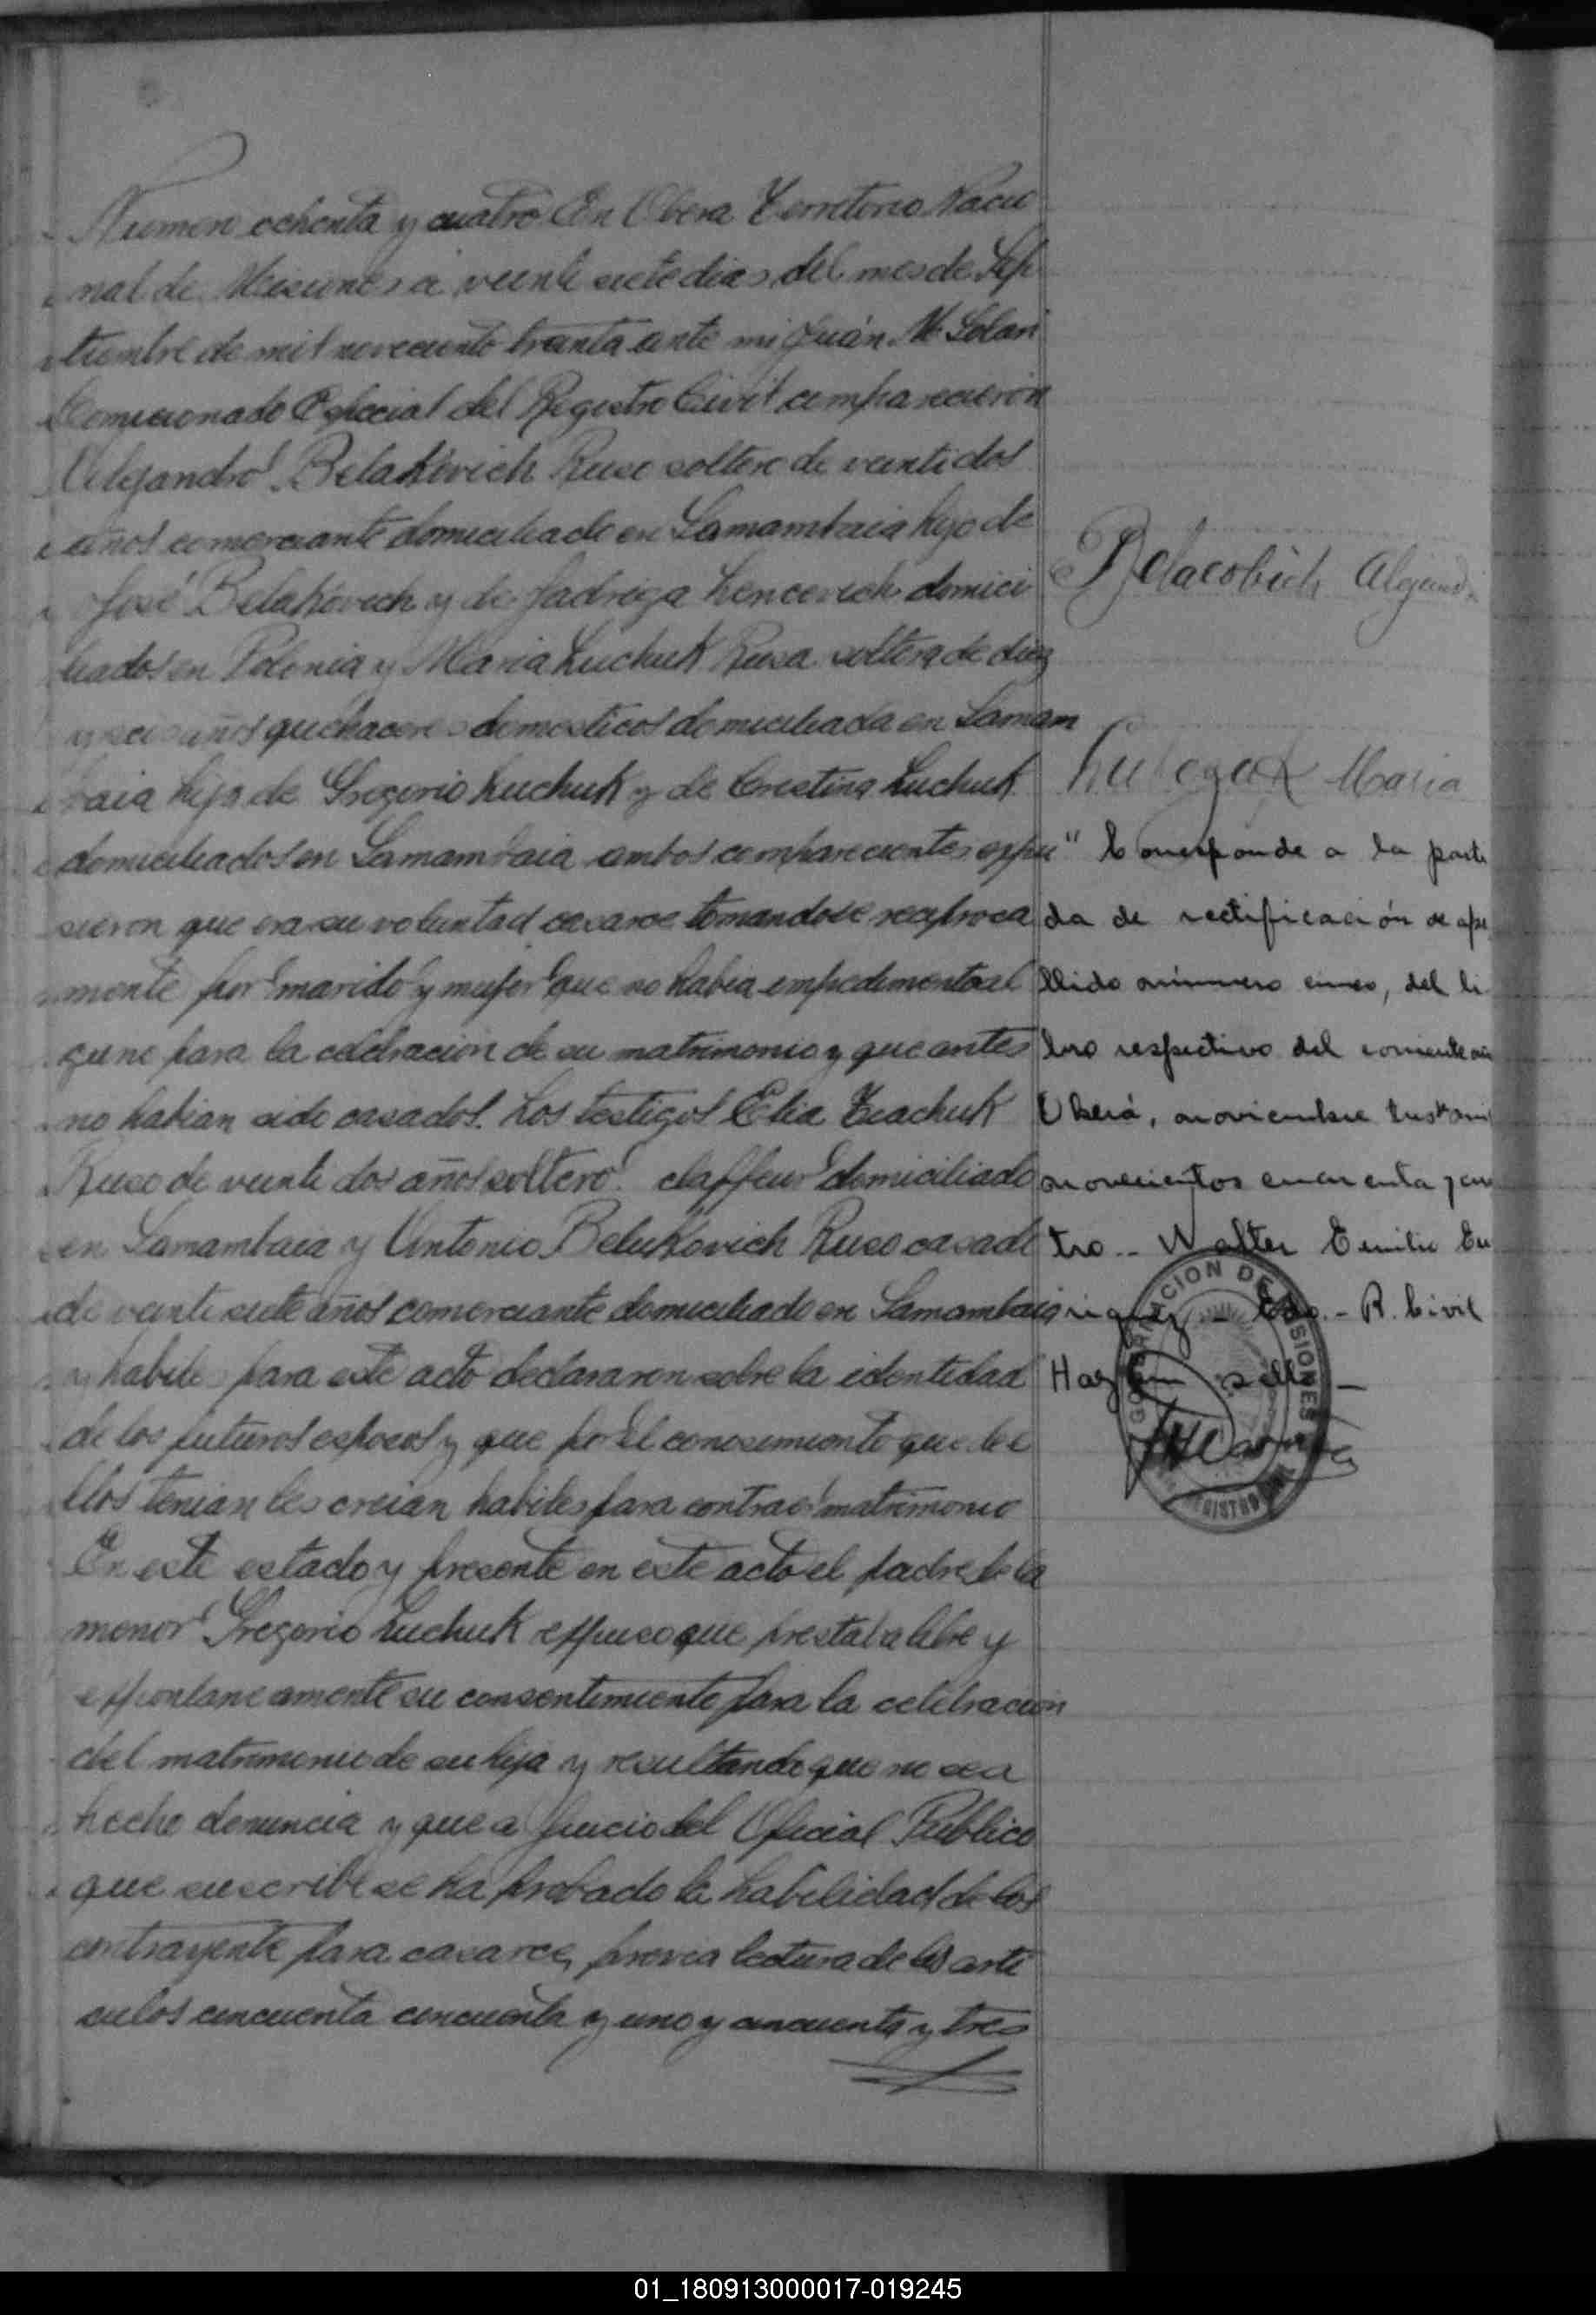 Numero ochenta y cuatro En Obera Territorio Nacio
nal de Misiones a veinte siete dias del mes de Sep
tiembre de mil noveciento treinta ante mi Juán M. Solari
Comicionado Especial del Registro Civil comparecieron
Alejandro Belakovich Ruso soltero de veintidos
años comerciante domiciliado en Samambaia hijo de
José Belakovich y de Jadviga Lencevich domici
liados en Polonia y Maria Luchuk Rusa soltera de diez
y seis años quehaceres domesticos domiciliada en Samam
baia hija de Gregorio Luchuk y de Cristina Luchuk
domiciliados en Samambaia ambos comparecientes expu
sieron que era su voluntad casarce tomandose reciproca
mente por marido y mujer que no habia impedimento al
guno para la celebracion de su matrimonio y que antes
no habian sido casados. Los testigos Elia Tcachuk
Ruso de veinte dos años soltero chaffeur domiciliado
en Samambaia y Antonio Belukovich Ruso casado
de veinte siete años comerciante domiciliado en Samambaia
y habiles para este acto declararon sobre la identidad
de los futuros esposos y que por el conosimiento que de e
llos tenian les creian habiles para contraer matrimonio
En este estado y presente en este acto el padre de la
menor Gregorio Luchuk expuso que prestaba libre y
expontaneamente su consentimiento para la celebracion
del matrimonio de su hija y resultando que no sea
hecho denuncia y que a juicio del Oficial Publico
que suscribe se ha probado la habilidad de los
contrayente para casarce, previa lectura de los arti
culos cincuenta cincuenta y uno y cincuenta y tres
Belacobich Alejand
Maria
" Corresponde a la parti
da de rectificación de ape
llido número cinco, del li
bro respectivo del corriente año
Oberá, noviembre mil
novecientos cuarenta y cua
tro.- Walter Emilio En
riquez - Edo. - R. Civil
Hay un sello -
GOBERNACION DE MISIONES
REGISTRO CIVIL
01_180913000017-019245